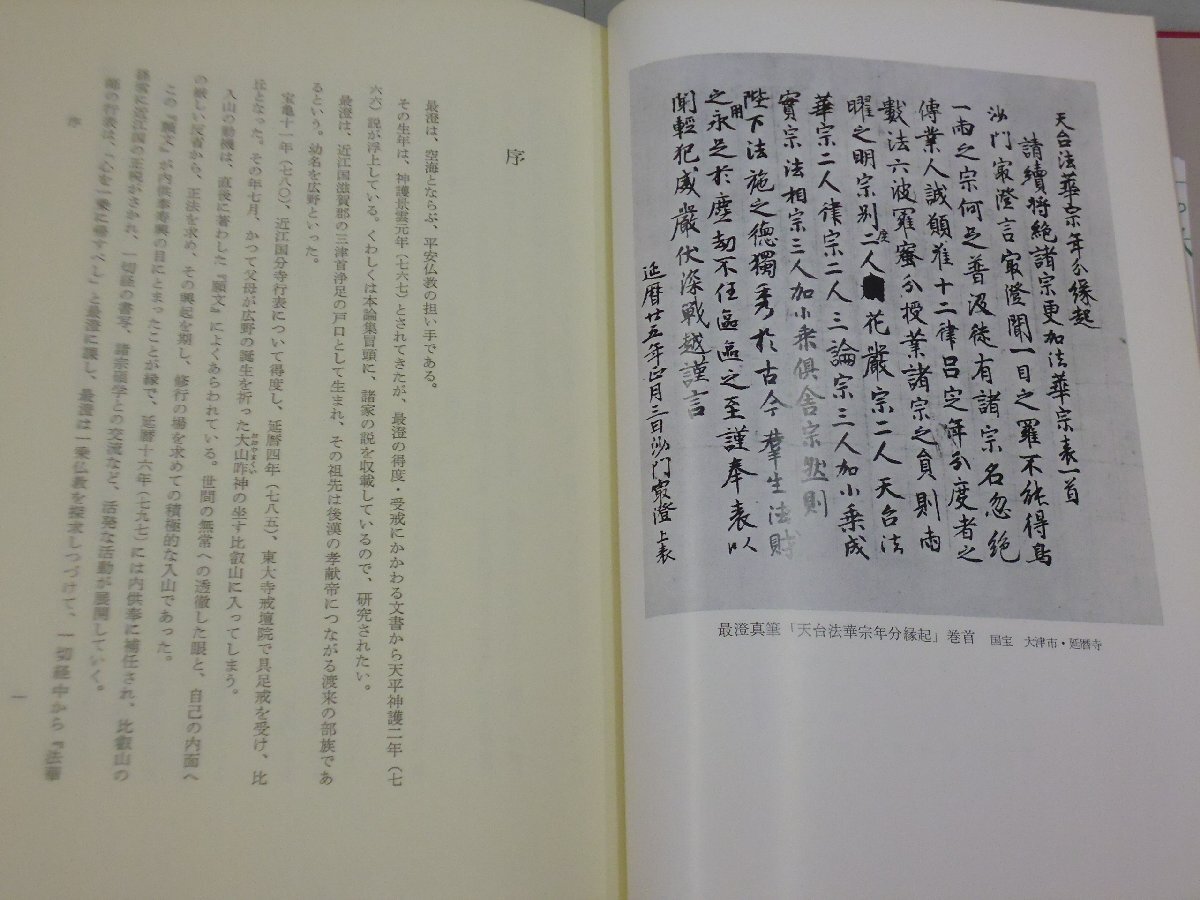 天台法華宗年分縁起
請續將絶諸宗更加法華宗表一首
沙門寂澄言寂澄聞一目之羅不能得鳥
一兩之宗何足普汲徒有諸宗名忽絶
傳業人誠願准十二律呂定年分度者之
數法六波羅蜜分授業諸宗之員則兩
曜之明宗別二人華嚴宗二人天台法
華宗二人律宗二人三論宗三人加小乗成
實宗法相宗三人加小乗倶舎宗然則
陛下法施之德獨秀於古今羣生法財
之用永足於塵劫不任區區之至謹奉表以
聞輕犯威嚴伏深戰越謹言
延暦廿五年正月三日沙門寂澄上表
最澄真筆「天台法華宗年分縁起」巻首 国宝 大津市・延暦寺
序
最澄は、空海とならぶ、平安仏教の担い手である。
その生年は、神護景雲元年(七六七)とされてきたが、最澄の得度・受戒にかかわる文書から天平神護二年(七
六六)説が浮上している。くわしくは本論集冒頭に、諸家の説を収載しているので、研究されたい。
最澄は、近江国滋賀郡の三津首浄足の戸口として生まれ、その祖先は後漢の孝献帝につながる渡来の部族であ
るという。幼名を広野といった。
宝亀十一年(七八〇)、近江国分寺行表について得度し、延暦四年(七八五)、東大寺戒壇院で具足戒を受け、比
丘となった。その年七月、かつて父母が広野の誕生を祈った大山咋神の坐す比叡山に入ってしまう。
入山の動機は、直後に著わした『願文』によくあらわれている。世間の無常への透徹した眼と、自己の内面へ
の厳しい反省から、正法を求め、その興起を期し、修行の場を求めての積極的な入山であった。
この『願文』が内供奉寿興の目にとまったことが縁で、延暦十六年(七九七)には内供奉に補任され、比叡山の
経営に近江国の正税がさかれ、一切経の書写、諸宗碩学との交流など、活発な活動が展開していく。
師の行表は、「心を一乗に帰すべし」と最澄に諭し、最澄は一乗仏教を探求しつづけて、一切経中から『法華
序
一